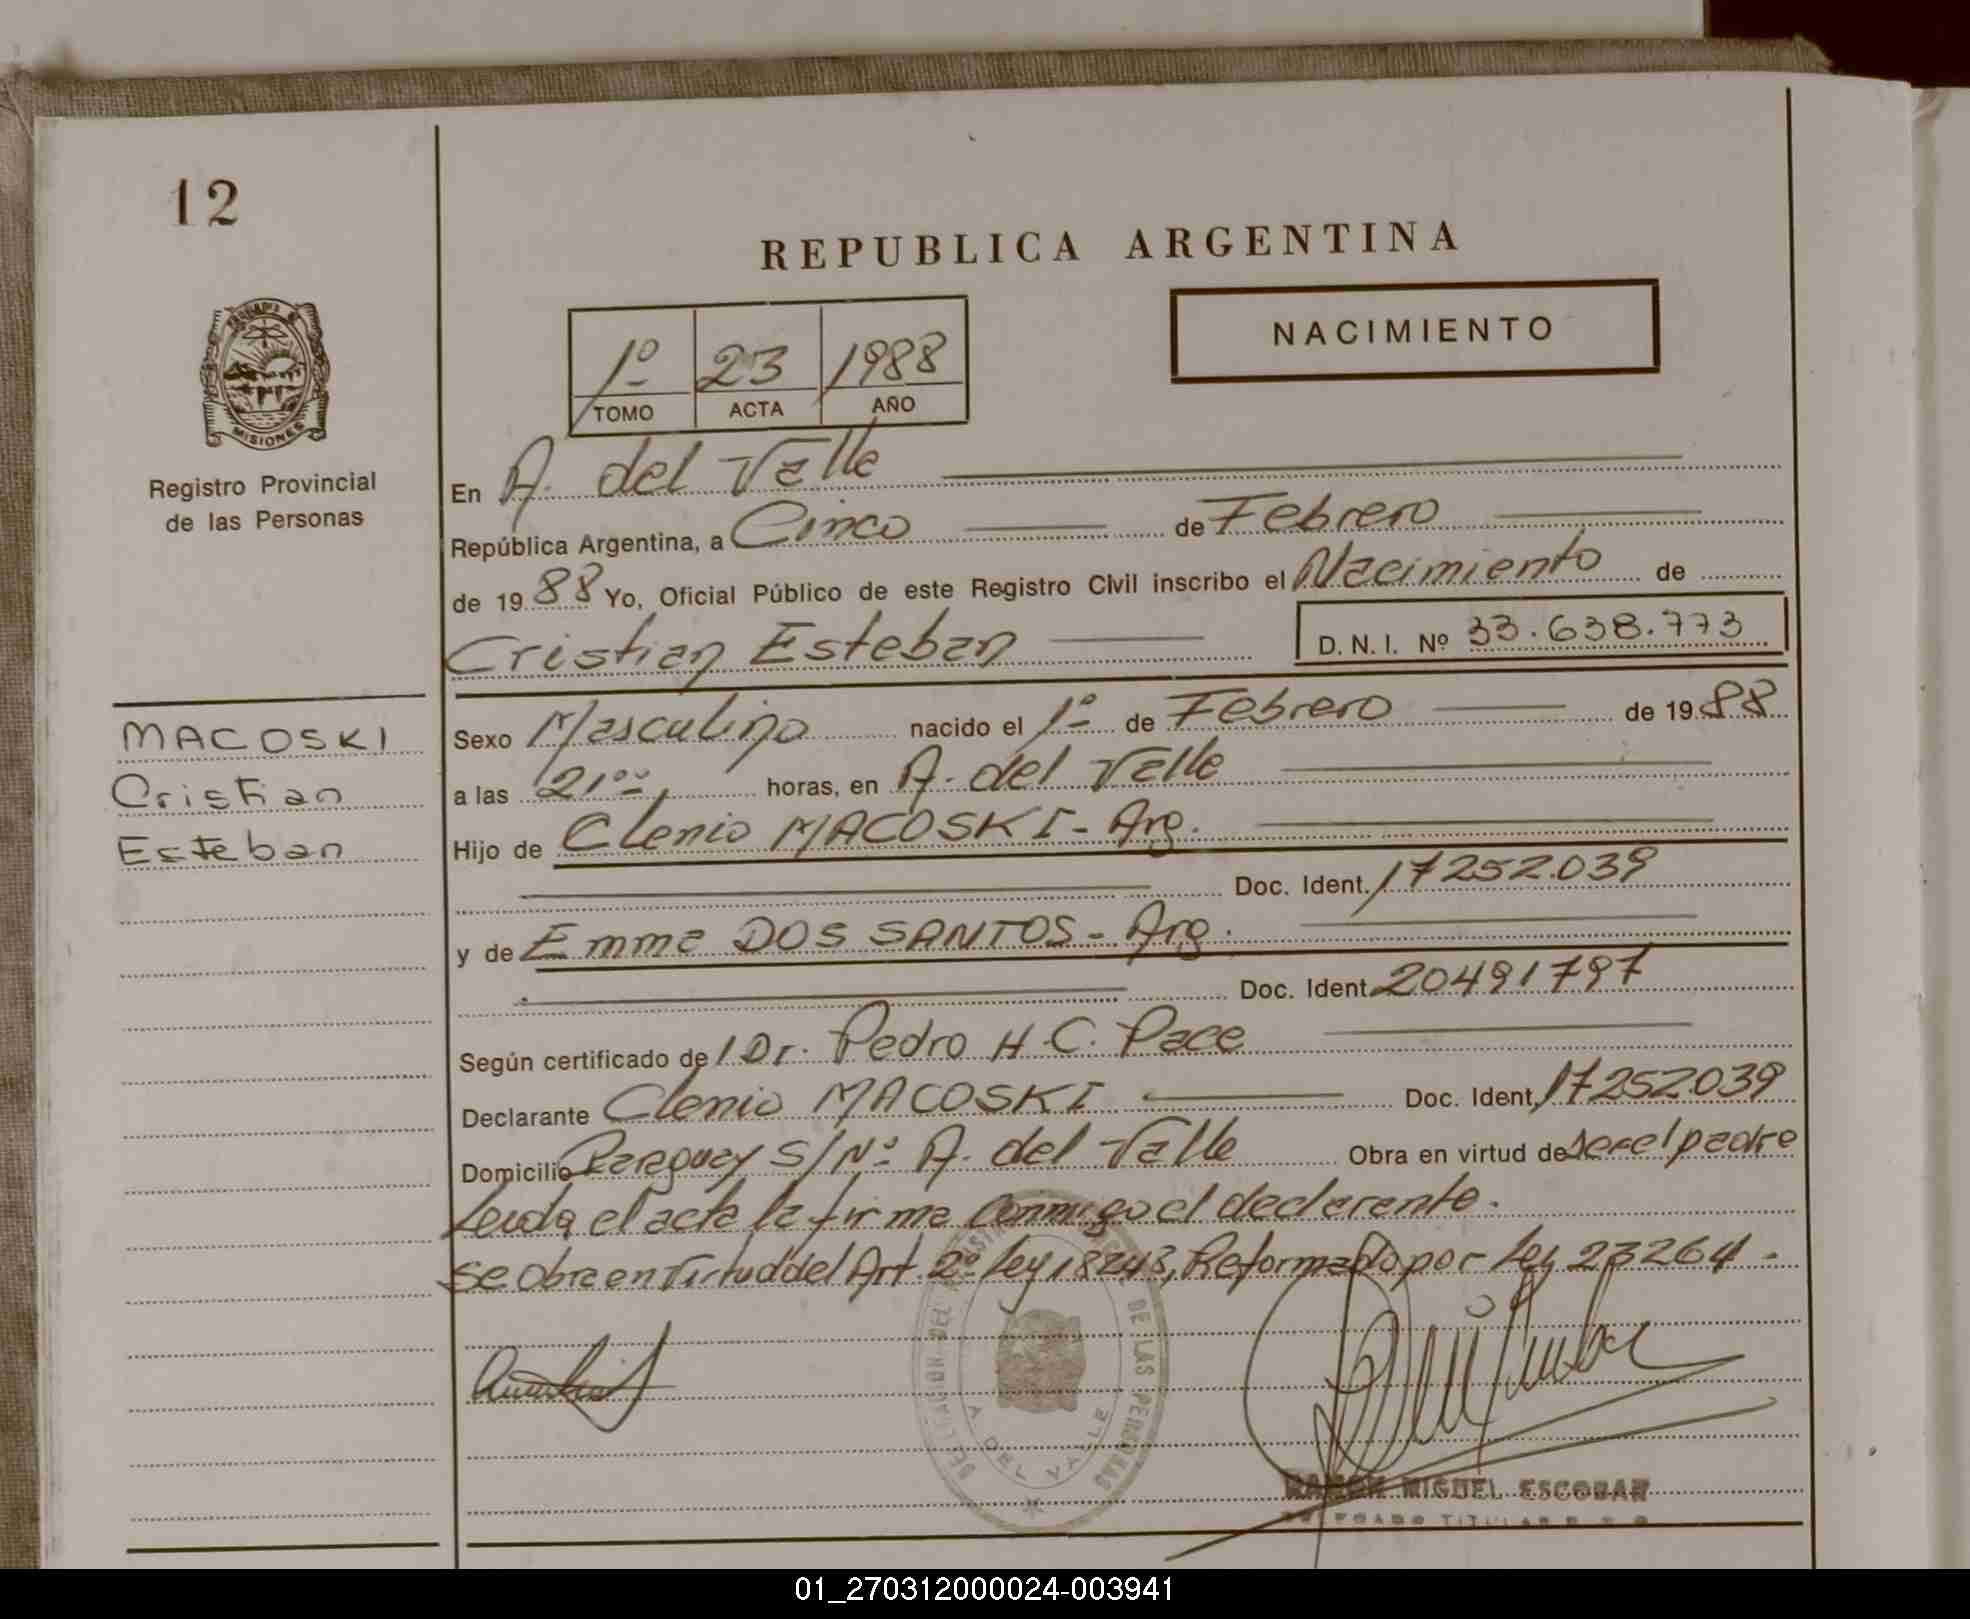 12
REPUBLICA ARGENTINA
NACIMIENTO
1º 23 1988
TOMO ACTA AÑO
MISIONES
Registro Provincial
de las Personas
En A. del Valle
República Argentina, a Cinco de Febrero
de 1988 Yo, Oficial Público de este Registro Civil inscribo el Nacimiento de
Cristian Esteban D. N. I. Nº 33.638.773
MACOSKI
Cristian
Esteban
Sexo Masculino nacido el 1º de Febrero de 1988
a las 21ºº horas, en A. del Valle
Hijo de Clenio MACOSKI - Arg.
Doc. Ident. 17252.039
y de Emma DOS SANTOS - Arg.
Doc. Ident. 20491797
Según certificado de/ Dr. Pedro H. C. Pace
Declarante Clenio MACOSKI Doc. Ident. 17252.039
Domicilio Paraguay S/Nº A. del Valle Obra en virtud de ser el padre
Leida el acta la firma conmigo el declarante.
se obra en virtud del Art. 2º Ley 18248, Reformado por Ley 23264 -
DELEGACION DEL DE LAS PERSONAS
A. DEL VALLE
RAMON MIGUEL ESCOBAR
DELEGADO TITULAR
01_270312000024-003941